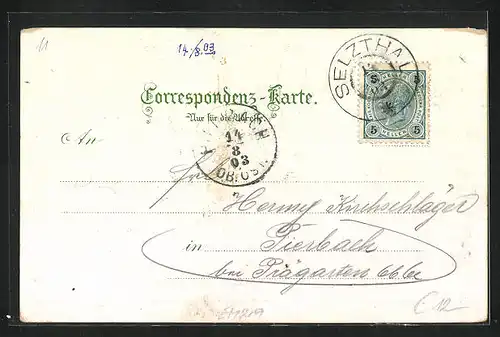 11
14/8.03
SELZTHAL
Correspondenz-Karte.
Nur für die Adresse.
5 HELLER 5
An
14
8
03
OB.ÖST.
Hermy Kirchschläger
in Pierbach
bei Prägarten
C 12